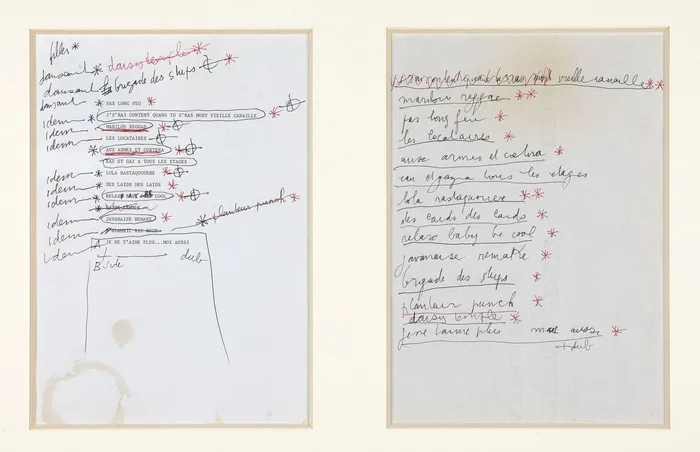 filles *
dansant * daisy temple *
dansant * la brigade des slips *
dansant * PAS LONG FEU *
idem J'S'RAS CONTENT QUAND TU S'RAS MORT VIEILLE CANAILLE *
idem MARILOU REGGAE *
idem LES LOCATAIRES
* AUX ARMES ET CÆTERA *
EAU ET GAZ A TOUS LES ETAGES
idem * LOLA RASTAQUOUERE *
idem * DES LAIDS DES LAIDS *
idem * RELAX BABY BE COOL *
idem * JAVANAISE REMAKE *
* planteur punch *
idem A JE NE T'AIME PLUS...MOI AUSSI
B dub
vieille canaille **
marilou reggae **
pas long feu *
les locataires *
aux armes et cætera *
eau et gaz a tous les etages
lola rastaquouere **
des laids des laids *
relax baby be cool *
javanaise remake *
brigade des slips *
planteur punch *
daisy temple *
je ne t'aime plus moi aussi *
+ dub